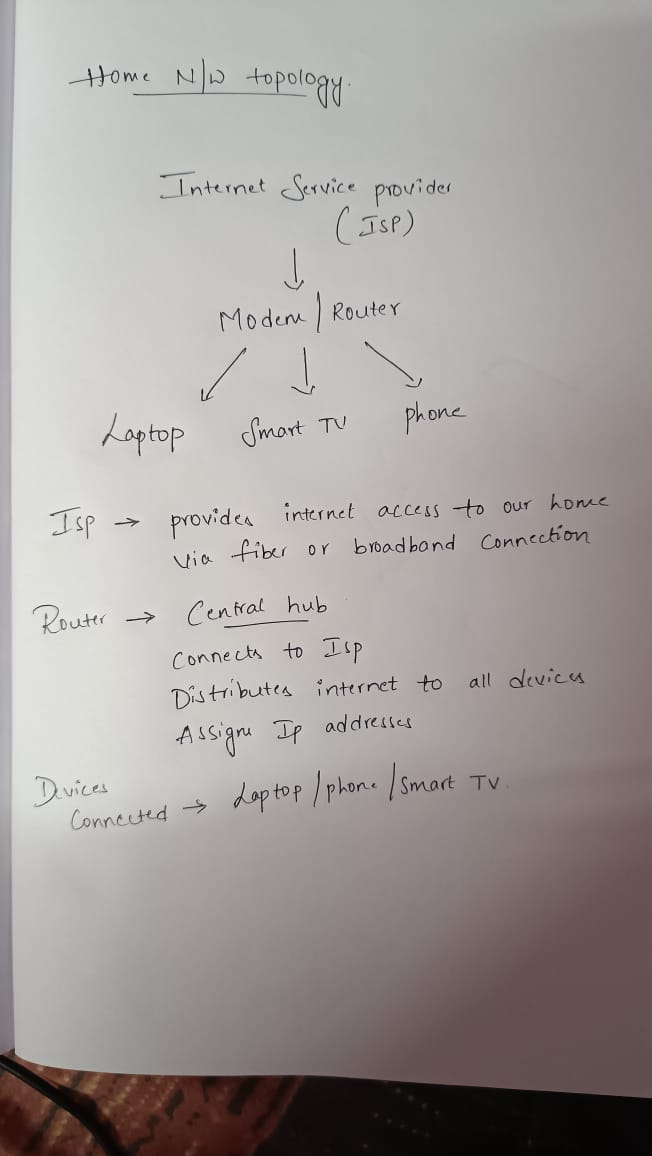 Home N/W topology.
Internet Service provider
(ISP)
↓
Modem / Router
↙ ↓ ↘
Laptop Smart TV phone
Isp → provides internet access to our home
via fiber or broadband connection
Router → Central hub
Connects to Isp
Distributes internet to all devices
Assigns Ip addresses
Devices
Connected → Laptop / phone / Smart TV.